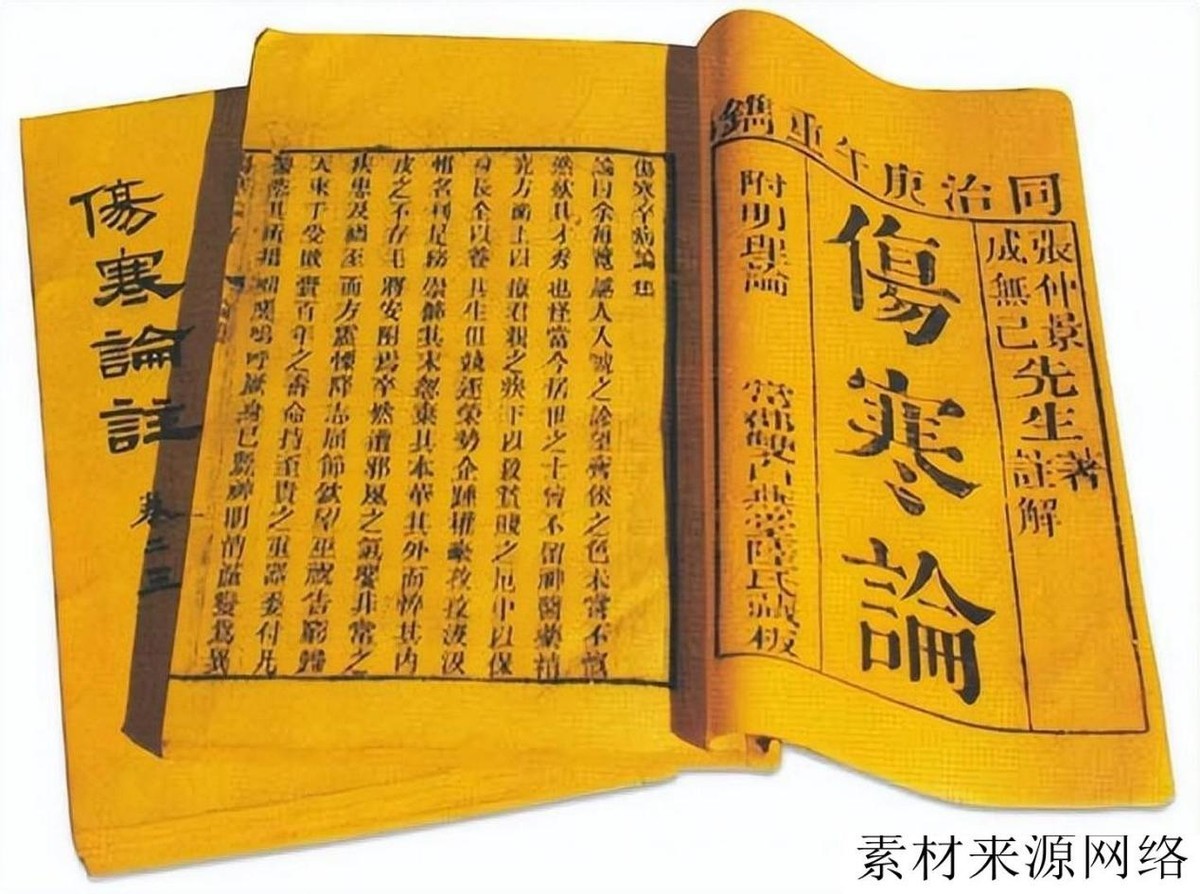 同治庚午重鐫
張仲景先生著
成無己先生註解
傷寒論
附明理論 常郡雙白燕堂陸氏藏板
傷寒卒病論集
論曰余每覽越人入虢之診望齊侯之色未嘗不慨
然歎其才秀也怪當今居世之士曾不留神醫藥精
究方術上以療君親之疾下以救貧賤之厄中以保
身長全以養其生但競逐榮勢企踵權豪孜孜汲汲
惟名利是務崇飾其末忽棄其本華其外而悴其內
皮之不存毛將安附焉卒然遭邪風之氣嬰非常之
疾患及禍至而方震慄降志屈節欽望巫祝告窮歸
天束手受敗賫百年之壽命持至貴之重器委付凡
醫恣其所措咄嗟嗚呼厥身已斃神明消滅變為異
傷寒論註 卷二三
素材来源网络